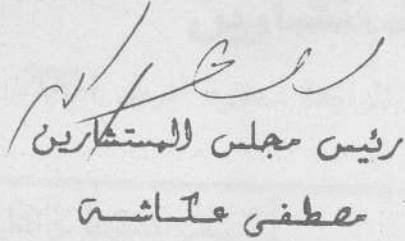 رئيس مجلس المستشارين
مصطفى عكاشة